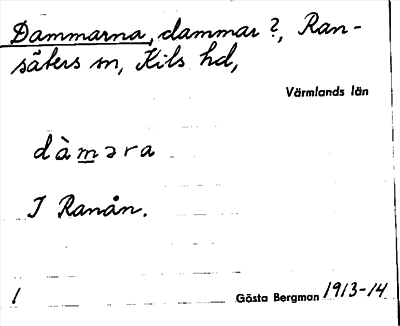 Dammarna, dammar?, Ran-
säters sn, Kils hd,
Värmlands län
dàməra
I Ranån.
1 Gösta Bergman 1913-14